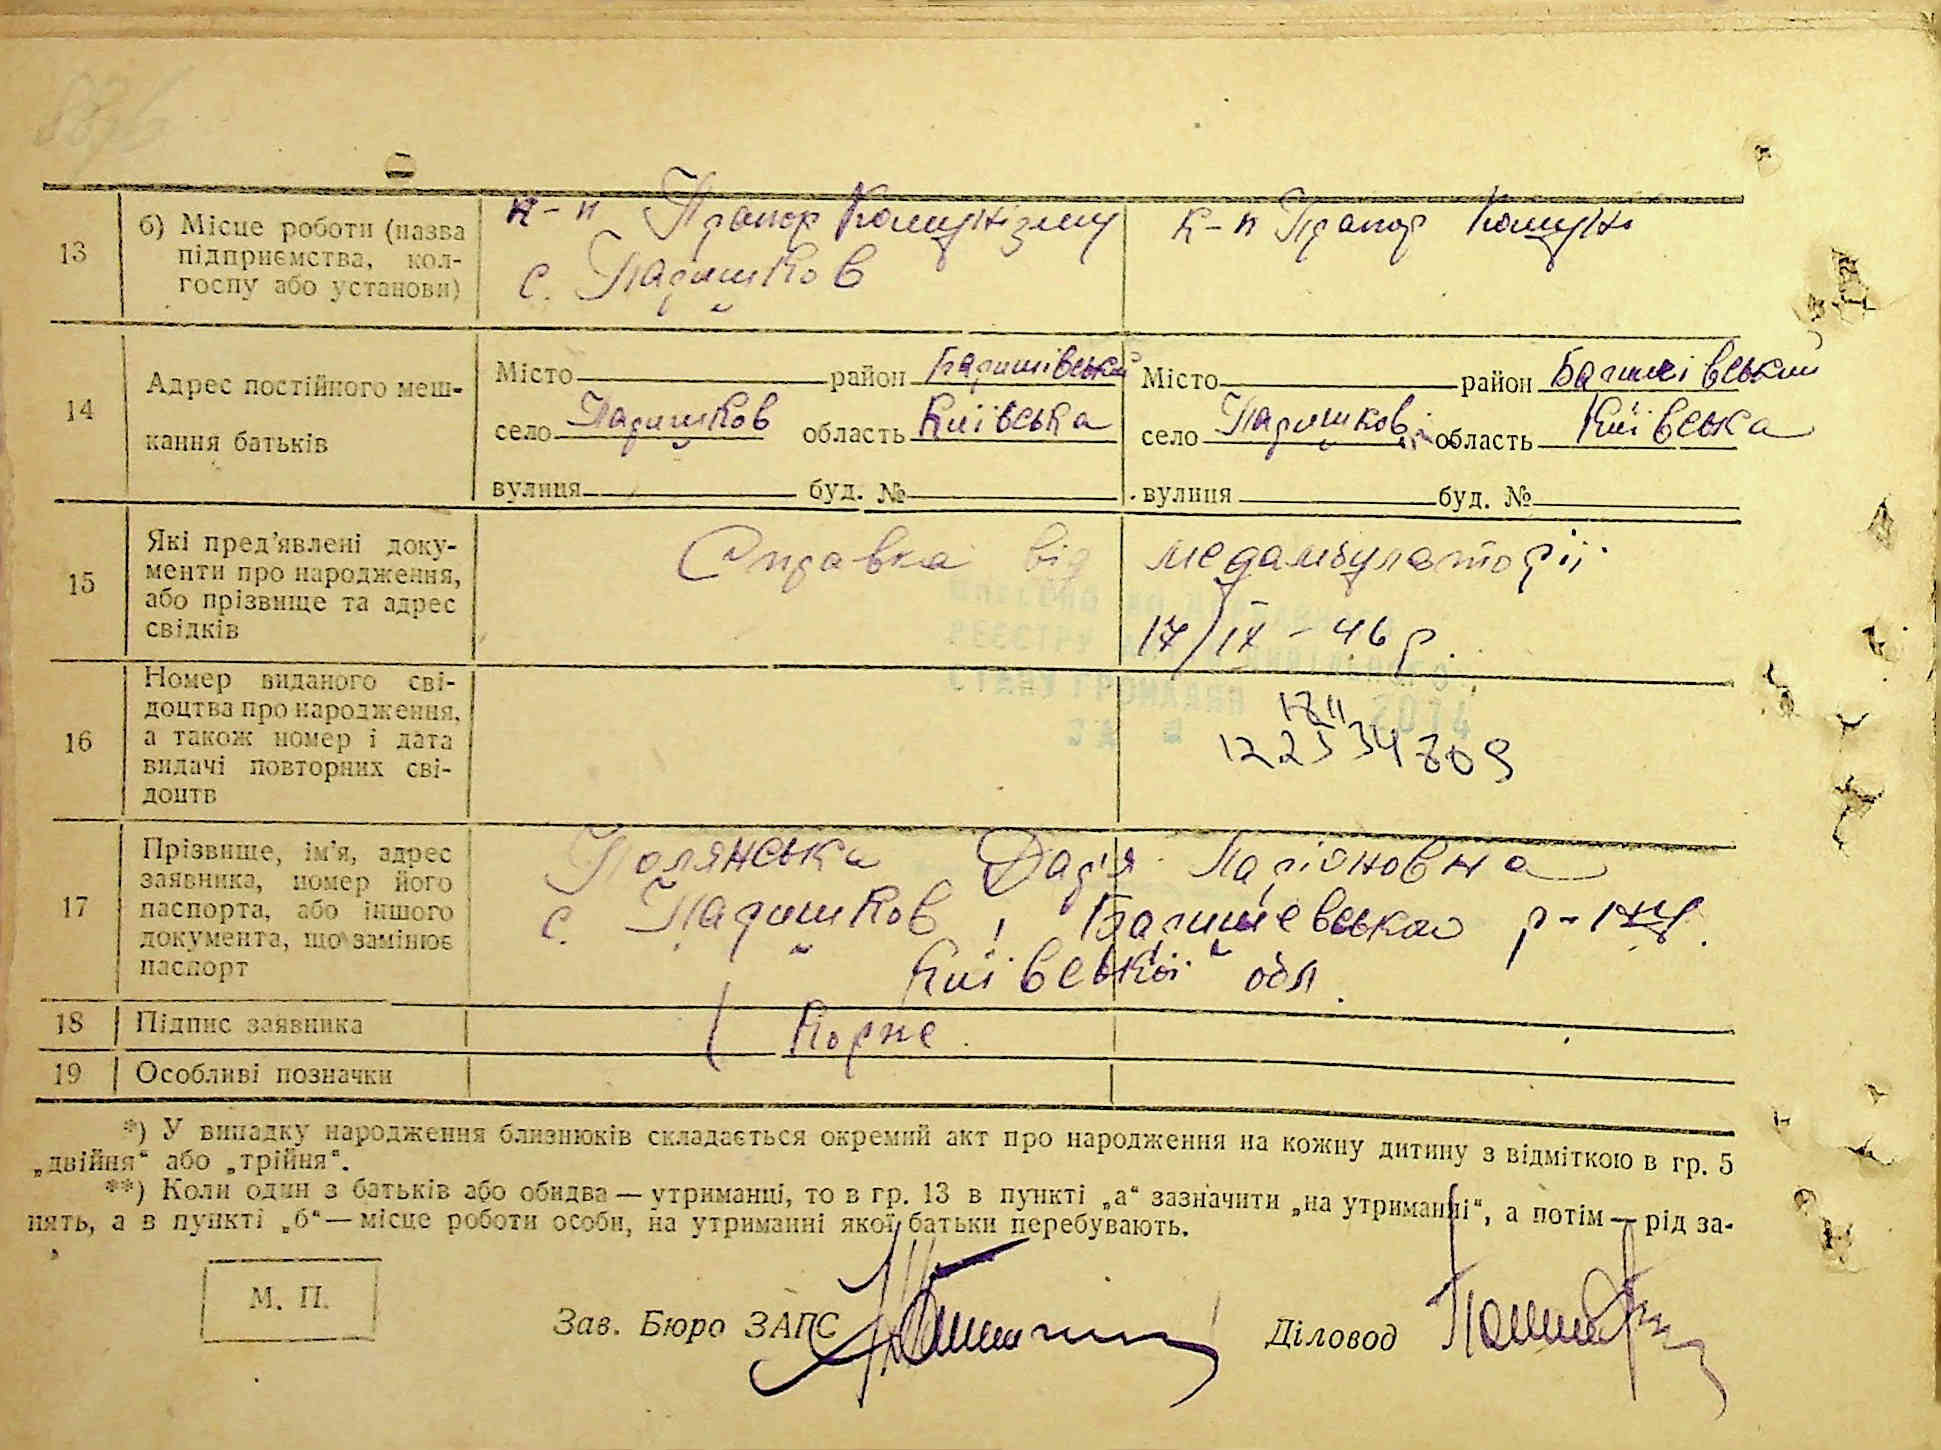 13
б) Місце роботи (назва
підприємства, кол-
госпу або установи)
к-п Прапор Комунізму
с. Паришков
к-п Прапор Комуні
14
Адрес постійного меш-
кання батьків
Місто район Баришівськ
село Паришков область Київська
вулиця буд. №
Місто район Баришівський
село Паришков область Київська
вулиця буд. №
15
Які пред’явлені доку-
менти про народження,
або прізвище та адрес
свідків
Справка від медамбулаторії
17/IX - 46 р.
РЕЄСТРУ
СТАНУ ГРОМАДЯН 2014
16
Номер виданого сві-
доцтва про народження,
а також номер і дата
видачі повторних сві-
доцтв
17
Прізвище, ім’я, адрес
заявника, номер його
паспорта, або іншого
документа, що замінює
паспорт
Полянська Дар'я Ларіоновна
с. Паришков, р-
Київської обл.
18
Підпис заявника
19
Особливі позначки
*) У випадку народження близнюків складається окремий акт про народження на кожну дитину з відміткою в гр. 5
„двійня“ або „трійня“.
**) Коли один з батьків або обидва — утриманці, то в гр. 13 в пункті „а“ зазначити „на утриманні“, а потім — рід за-
нять, а в пункті „б“ — місце роботи особи, на утриманні якої батьки перебувають.
М. П.
Зав. Бюро ЗАГС
Діловод